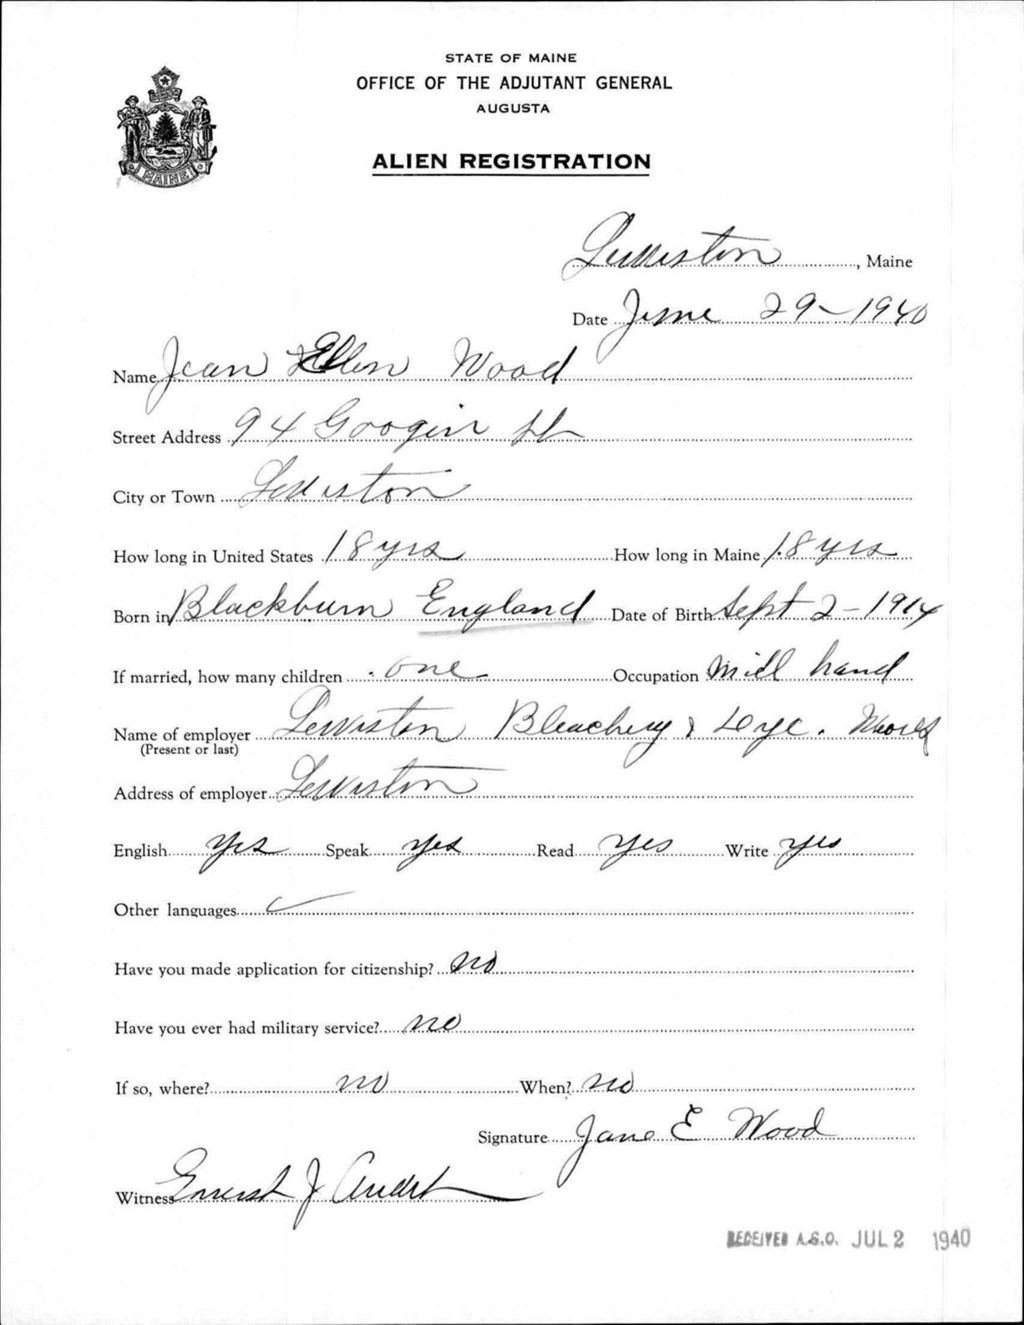 STATE OF MAINE
OFFICE OF THE ADJUTANT GENERAL
AUGUSTA
ALIEN REGISTRATION
MAINE
Lewiston, Maine
Date June 29-1940
Name Jean Ellen Wood
Street Address 94 Googin St
City or Town Lewiston
How long in United States 18 yrs How long in Maine 18 yrs
Born in Blackburn England Date of Birth Sept 2-1914
If married, how many children one Occupation Mill hand
Name of employer Lewiston Bleachery & Dye. Works
(Present or last)
Address of employer Lewiston
English yes Speak yes Read yes Write yes
Other languages
Have you made application for citizenship? no
Have you ever had military service? no
If so, where? no When? no
Signature Jane E Wood
Witness Ernest J Audet
RECEIVED A.G.O. JUL 2 1940